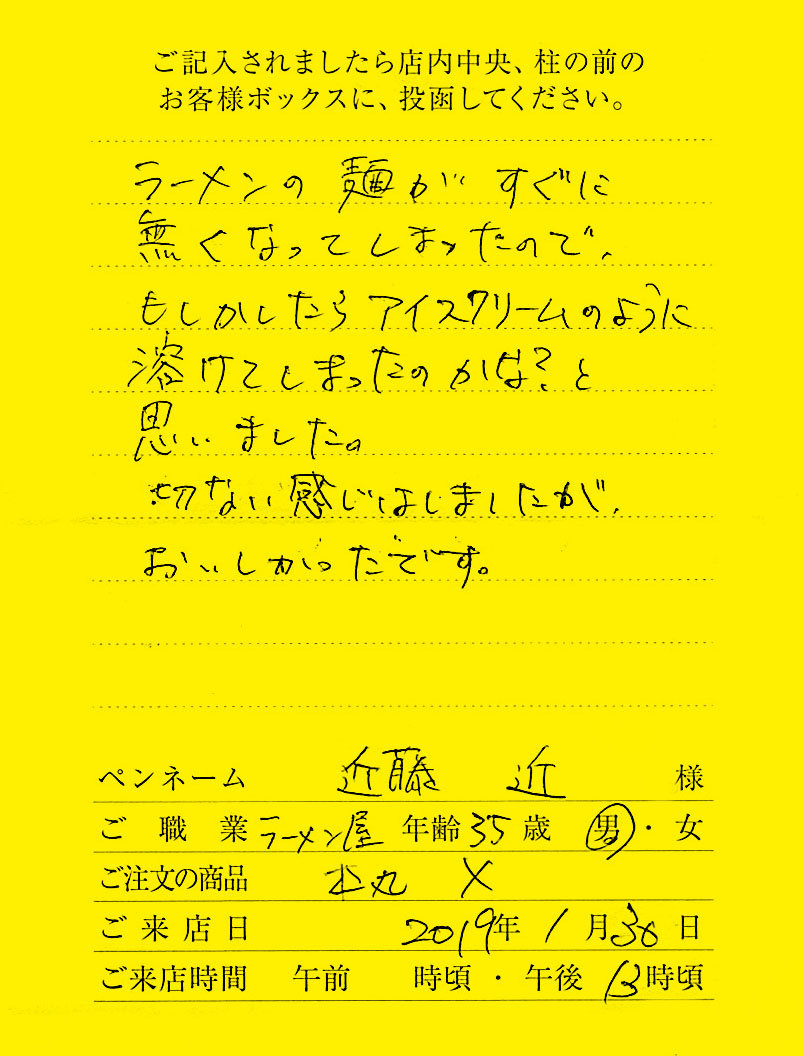 ご記入されましたら店内中央、柱の前の
お客様ボックスに、投函してください。
ラーメンの麺がすぐに
無くなってしまったので、
もしかしたらアイスクリームのように
溶けてしまったのかな?と
思いました。
切ない感じはしましたが、
おいしかったです。
ペンネーム 近藤 近 様
ご職業 ラーメン屋 年齢 35 歳 男・女
ご注文の商品 丸 X
ご来店日 2019年 1月30日
ご来店時間 午前 時頃・午後 13時頃